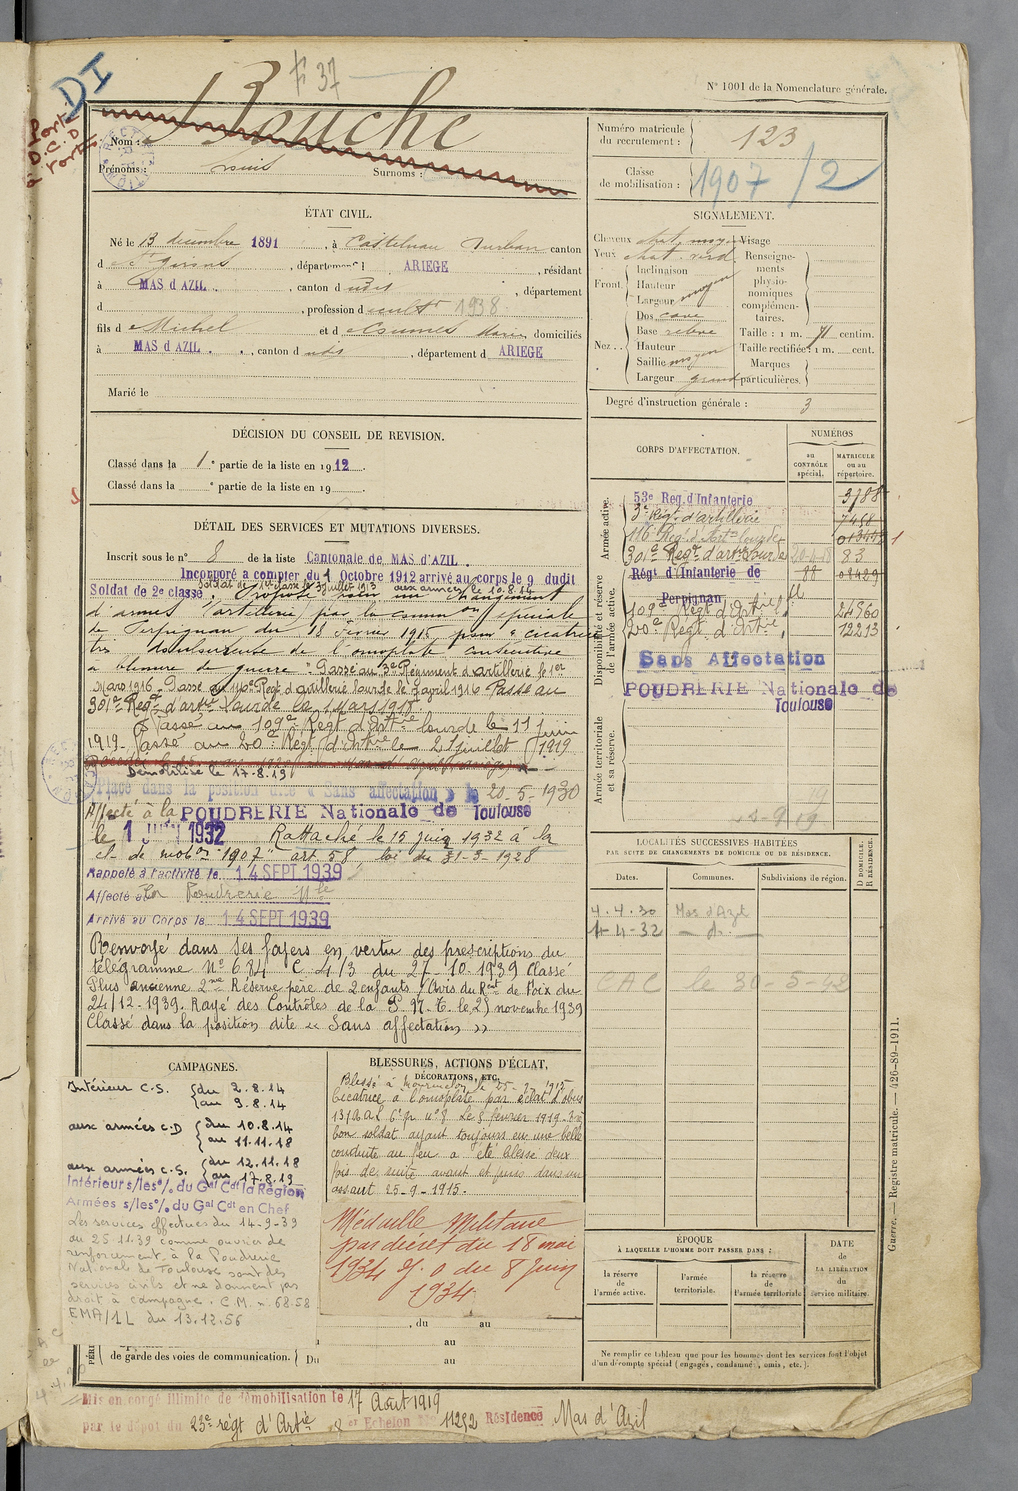 N° 1001 de la Nomenclature générale.
F 37
DI
Nom : Bouche
Prénoms :
Surnoms :
Numéro matricule du recrutement : 123
Classe de mobilisation : 1907 /2
ÉTAT CIVIL.
Né le 13 décembre 1891, à Castelnau Durban canton
d St Girons, département d ARIEGE, résidant
à MAS d AZIL, canton d udit, département
d , profession d cultr 1938
fils d Michel et d Marie domiciliés
à MAS d AZIL, canton d udit, département d ARIEGE
Marié le
SIGNALEMENT.
Cheveux chat. moy.
Yeux chat. verd
Front Inclinaison
Hauteur
Largeur moyen
Nez Dos cave
Base relevé
Hauteur
Saillie moyen
Largeur grand
Visage
Renseignements physionomiques complémentaires.
Taille : 1 m. 71 centim.
Taille rectifiée : 1 m. cent.
Marques particulières.
Degré d'instruction générale : 3
DÉCISION DU CONSEIL DE REVISION.
Classé dans la 1e partie de la liste en 1912.
Classé dans la e partie de la liste en 19
DÉTAIL DES SERVICES ET MUTATIONS DIVERSES.
Inscrit sous le n° 8 de la liste Cantonale de MAS d'AZIL.
Incorporé a compter du 1 Octobre 1912 arrivé au corps le 9 dudit
Soldat de 1re classe le 3 juillet 1913 aux armées le 10.8.14
Soldat de 2e classe. Proposé pour un changement
d'armes "artillerie" par la common spéciale
de Perpignan du 18 février 1915, pour "cicatrice
très douloureuse de l'omoplate consécutive
à blessure de guerre". Passé au 3e Régiment d'artillerie le 1er
Mars 1916. Passé au 116e Regt d'artillerie lourde le 7 avril 1916 Passé au
301e Regt d'artie Lourde le 1 Mars 1918
Passé au 109e Regt d'Artie lourde le 11 juin
1919. Passé au 20e Regt d'Artie le 21 juillet 1919
Démobilisé le 17.8.19
Placé dans la position dite « Sans affectation » le 20-5-1930
Affecté à la POUDRERIE Nationale de Toulouse
le 1 JUIN 1932 Rattaché le 15 juin 1932 à la
cl. de mobon 1907 art 58, loi du 31-3-1928
Rappelé à l'activité le 14 SEPT 1939
Affecté à la Poudrerie Nle
Arrivé au Corps le 14 SEPT 1939
Renvoyé dans ses foyers en vertu des prescriptions du
télégramme N° 684 C 4/3 du 27-10-1939 Classé
Plus ancienne 2me Réserve père de 2 enfants (Avis du Rmt de Foix du
24/12-1939. Rayé des Contrôles de la P. N. T. le 25 novembre 1939
Classé dans la position dite « Sans affectation »
CORPS D'AFFECTATION.
NUMÉROS
au CONTRÔLE spécial.
MATRICULE ou au répertoire.
Armée active.
Disponibilité et réserve de l'armée active.
Armée territoriale et sa réserve.
53e Reg. d'Infanterie 3788
3e Régt d'artillerie 7458
116e Regt d'Arti lourde 01344
301e Regt d'artie Lourde 20-4-18 83
Régt d'Infanterie de Perpignan 88 08429
109e Regt d'Artie 24860
20e Regt d'Artie 12213
Sans Affectation
POUDRERIE Nationale de Toulouse
LOCALITÉS SUCCESSIVES HABITÉES
PAR SUITE DE CHANGEMENTS DE DOMICILE OU DE RÉSIDENCE.
Dates.
Communes.
Subdivisions de région.
D DOMICILE. R RÉSIDENCE.
4.4.30 Mas d'Azil
4-4-32 — d° —
CAC le 30-5-42
CAMPAGNES.
Intérieur C.S. du 2.8.14 au 9.8.14
aux armées C.D du 10.8.14 au 11.11.18
aux armées C.S. du 12.11.18 au 17.8.19
Intérieur s/les °/. du Gal Cdt la Région
Armées s/les °/. du Gal Cdt en Chef
Les services effectués du 14-9-39
au 25.11.39 comme ouvrier de
renforcement, à la Poudrerie
Nationale de Toulouse sont des
services civils et ne donnent pas
droit à campagne. C.M. n. 68.58
EMA/1L du 13.12.56
BLESSURES, ACTIONS D'ÉCLAT,
DÉCORATIONS, ETC.
Blessé à Mourmelon le 25- -1915
Cicatrice à l'omoplate par éclat d'obus
bon soldat ayant toujours eu une belle
conduite au feu a été blessé deux
fois de suite avant et puis dans un
assaut 25-9-1915.
Médaille Militaire
par décret du 18 mai
1934 J. O du 8 Juin
1934
, du au
au
de garde des voies de communication. Du au
ÉPOQUE
À LAQUELLE L'HOMME DOIT PASSER DANS :
la réserve de l'armée active.
l'armée territoriale.
la réserve de l'armée territoriale
DATE de LA LIBÉRATION du service militaire.
Ne remplir ce tableau que pour les hommes dont les services font l'objet
d'un décompte spécial (engagés, condamnés, omis, etc.).
Guerre. — Registre matricule. — 426-89-1911.
Mis en congé illimité de démobilisation le 17 Août 1919
par le dépôt du 23e régt d'Artie 2 er Echelon No 11252 Résidence Mas d'Azil